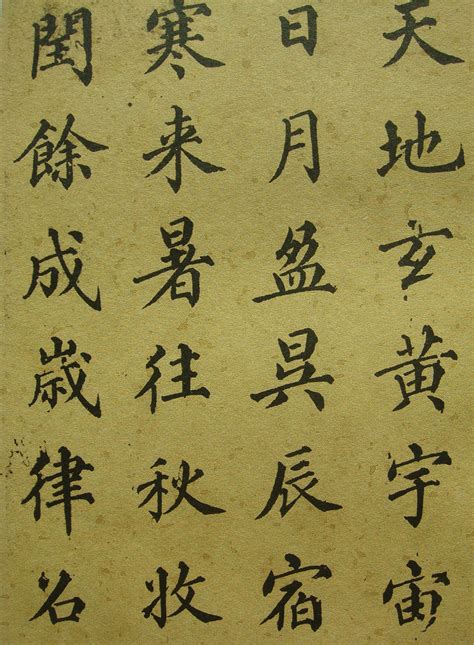 天地玄黄宇宙
日月盈昃辰宿
寒来暑往秋收
閏餘成歳律吕